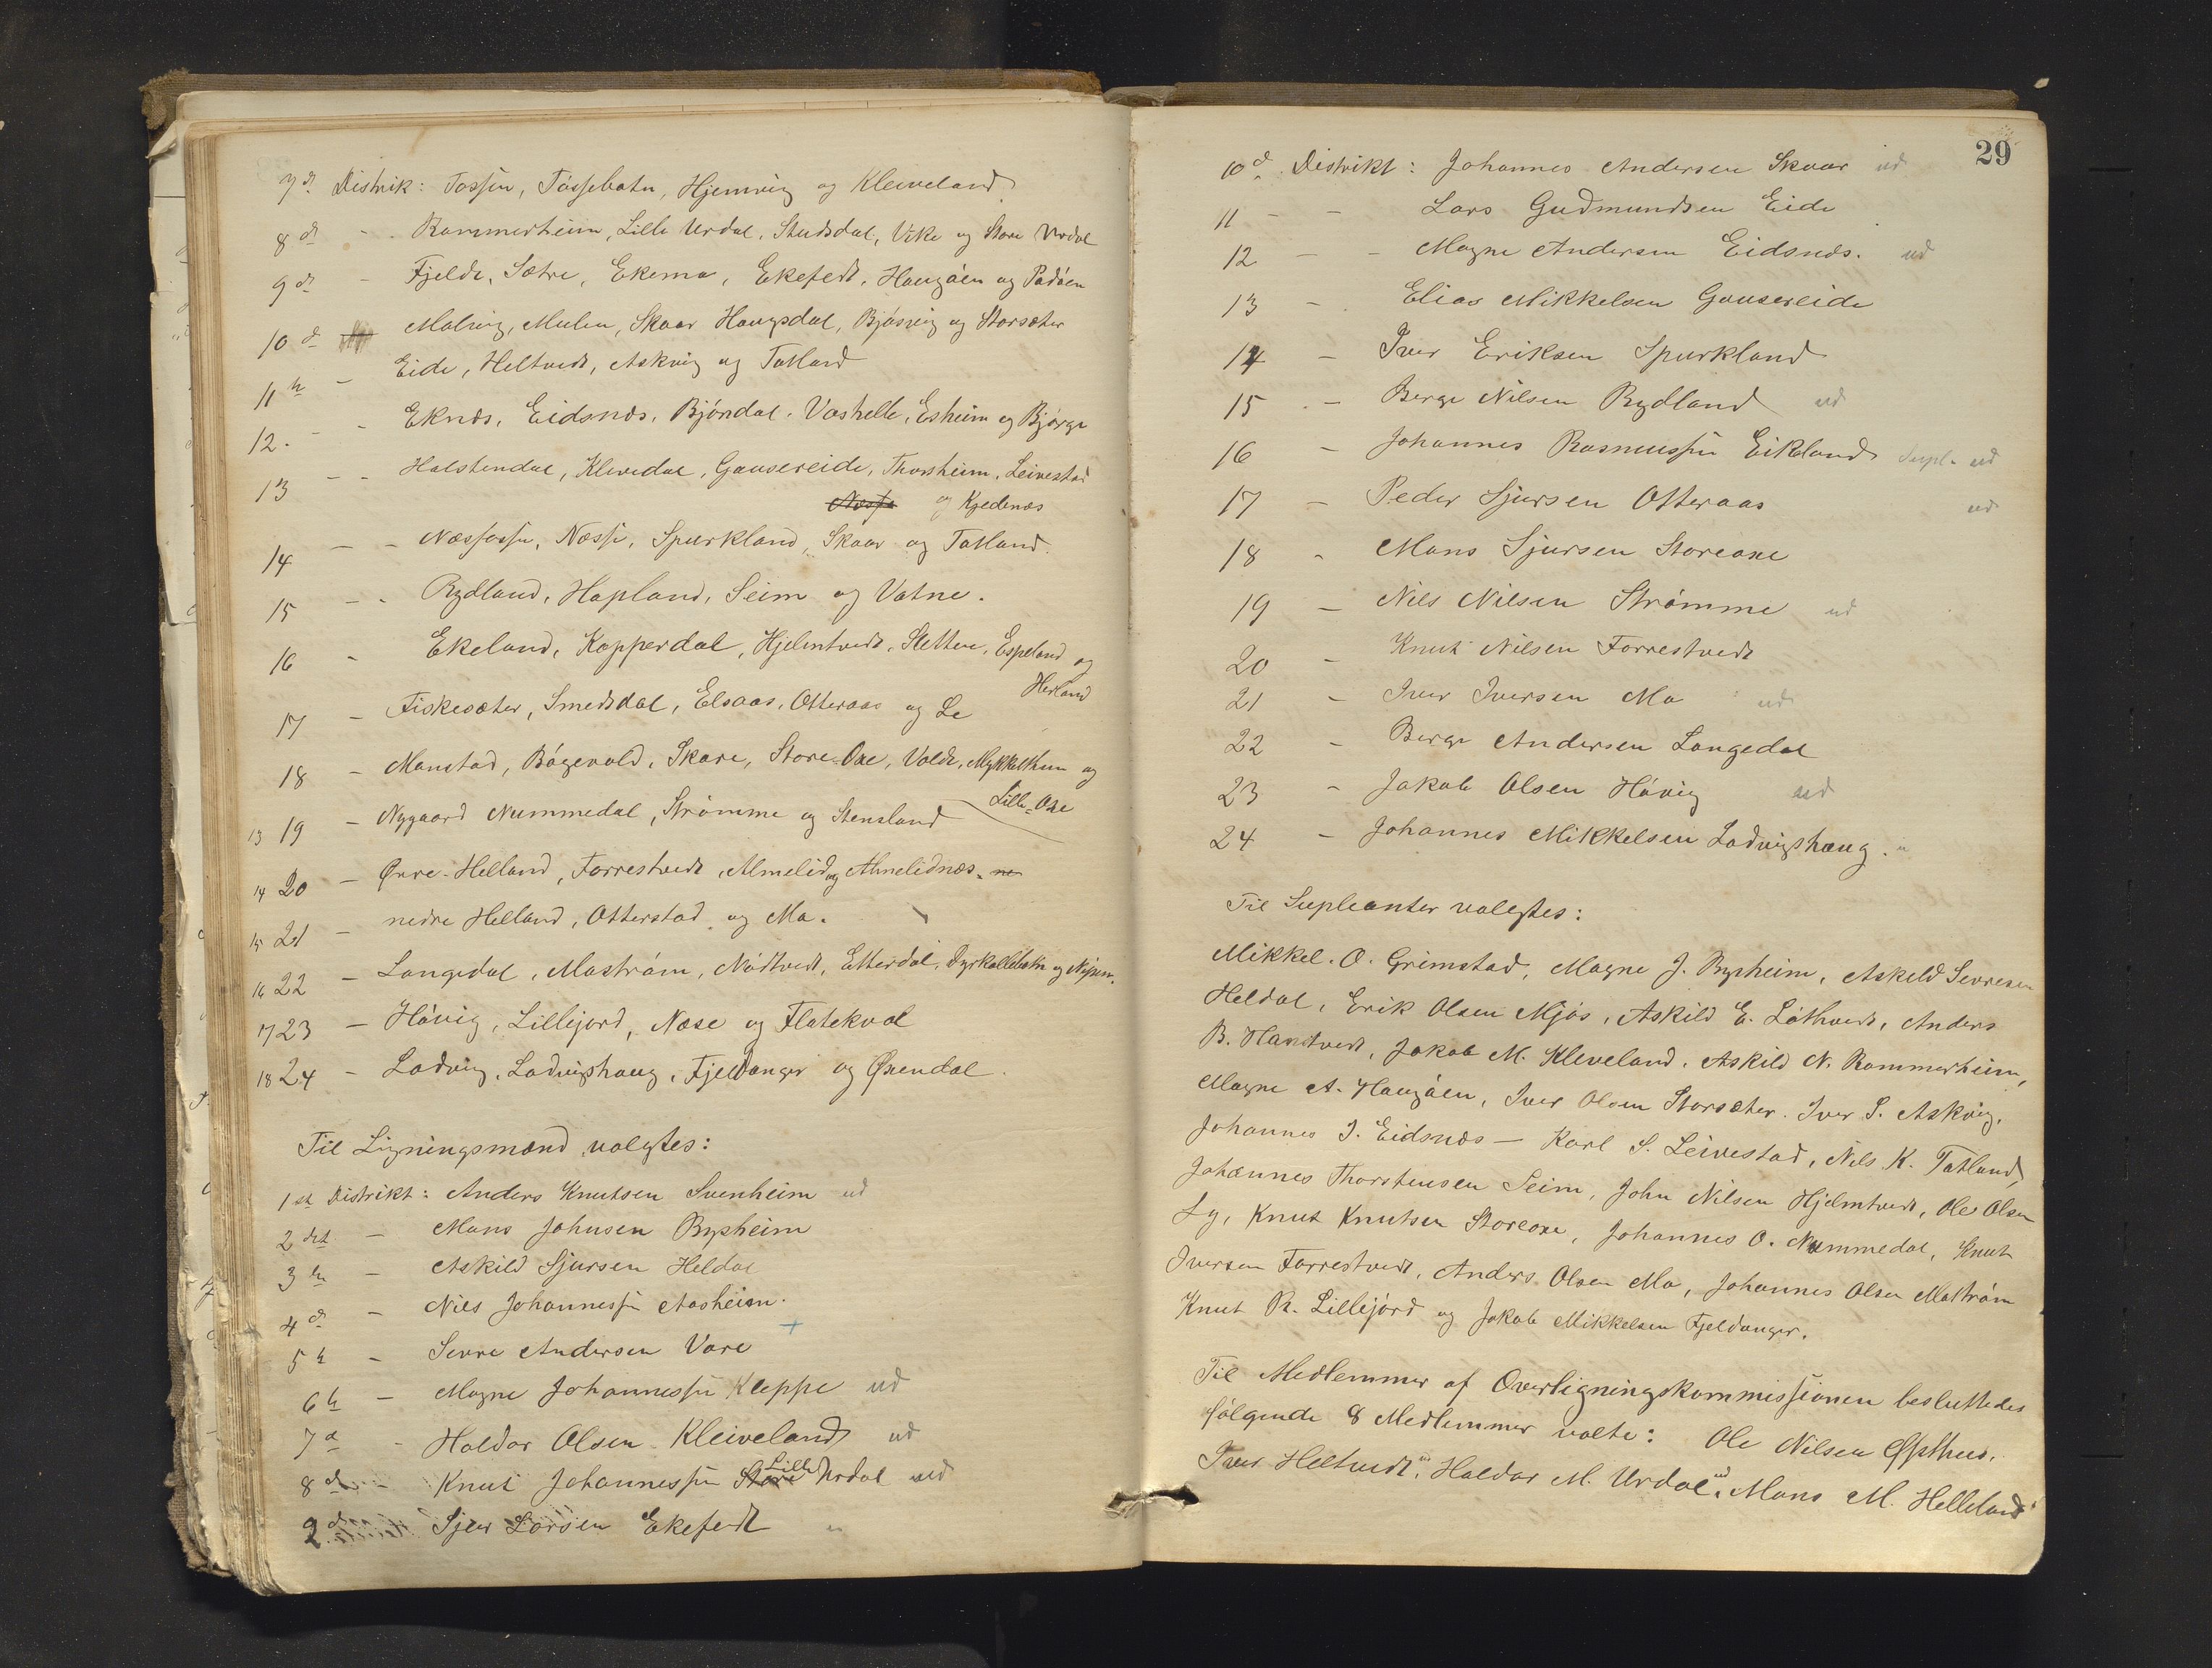 7d Distrik: Tossen, Tossebotn, Hjemvig og Kleiveland
8de - - Rommerheim, Lille Urdal, Studsdal, Vike og Store Urdal
9de - Fjelde, Sætre, Ekemo, Ekefedt, Haugöen og Padöen
10d Molvig, Mulen, Skaar Haugsdal, Bjösvig og Storsæter
11te - Eide, Heltvedt, Askvig og Tatland
12. - - Eknæs, Eidsnæs, Bjöndal, Vashelle, Esheim og Bjørge
13 - - Holstendal, Klevedal, Gausereide, Thorsheim, Leivestad
Næsse og Kjedenæs
14 - - Næsfossen, Næsse, Spurkland, Skaar og Tatland.
15 - - Rydland, Hopland, Seim og Vatne.
16 - Ekeland, Kopperdal, Hjelmtvedt, Sletten, Espeland og
Herland
17 - Fiskesæter, Smedsdal, Elsaas, Otteraas og Le
18 - Monstad, Bögevold, Skare, Store-Oxe, Volde, Mykkeltun og
Lille-Oxe
13 19 - Nygaard Nummedal, Strömme og Stensland
14 20 - Øvre-Helland, Forrestvedt, Almelid og Almelidnæs. ne
15 21 - nedre Helland, Otterstad og Mo.
16 22 - Langedal, Mostrøm, Nödtvedt, Etterdal, Dyrkolbotn og Nipen.
17 23 - Hövig, Lillejord, Næse og Flatekval
18 24 - Ladvig, Ladvigshaug, Fjeldanger og Øxendal.
Til Ligningsmænd valgtes:
1ste Distrikt: Anders Knutsen Svenheim ud
2det - Mons Johnsen Rypheim
3die - Askild Sjursen Heldal
4d - Nils Johannessen Aasheim.
5te - Sevre Andersen Vare +
6te - Magne Johannessen Kleppe ud
7d - Haldor Olsen Kleiveland ud
8de - Knut Johannessen Store Lille Urdal ud
9de - Sjur Larsen Ekefedt
29
10d Distrikt: Johannes Andersen Skaar ud
11 - - Lars Gudmundsen Eide
12 - - Magne Andersen Eidsnæs. ud
13 - Elias Mikkelsen Gausereide
14 - Iver Eriksen Spurkland
15 - Berge Nilsen Rydland ud
16 - Johannes Rasmussen Eikeland Supl. ud
17 - Peder Sjursen Otteraas ud
18 - Mons Sjursen Storeoxe
19 - Nils Nilsen Strömme ud
20 - Knut Nilsen Forrestvedt
21 - Iver Iversen Mo ud
22 - Berge Andersen Langedal
23 - Jakob Olsen Hövig ud
24 - Johannes Mikkelsen Ladvigshaug.
Til Supleanter valgtes:
Mikkel. O. Grimstad, Magne J. Rypheim, Askeld Sevresen
Heldal, Erik Olsen Mjös, Askild E. Löthvedt, Anders
B. Hantvedt, Jakob M. Kleveland, Askild N. Rommerheim,
Magne A. Haugöen, Iver Olsen Storsæter. Iver S. Askvig.
Johannes J. Eidsnæs - Karl S. Leivestad, Nils K. Tatland,
Johannes Thorstensen Seim, John Nilsen Hjelmtvedt, Ole Olsen
Ly, Knut Knutsen Storeoxe, Johannes O. Nummedal, Knut
Iversen Forrestvedt, Anders Olsen Mo, Johannes Olsen Mostrøm
Knut R. Lillejörd og Jakob Mikkelsen Fjeldanger.
Til Medlemmer af Overligningskommissionen besluttedes
fölgende 8 Medlemmer valte: Ole Nilsen Øpsthus.
Iver Heltvedt, Haldor M. Urdal, Mons M. Helleland